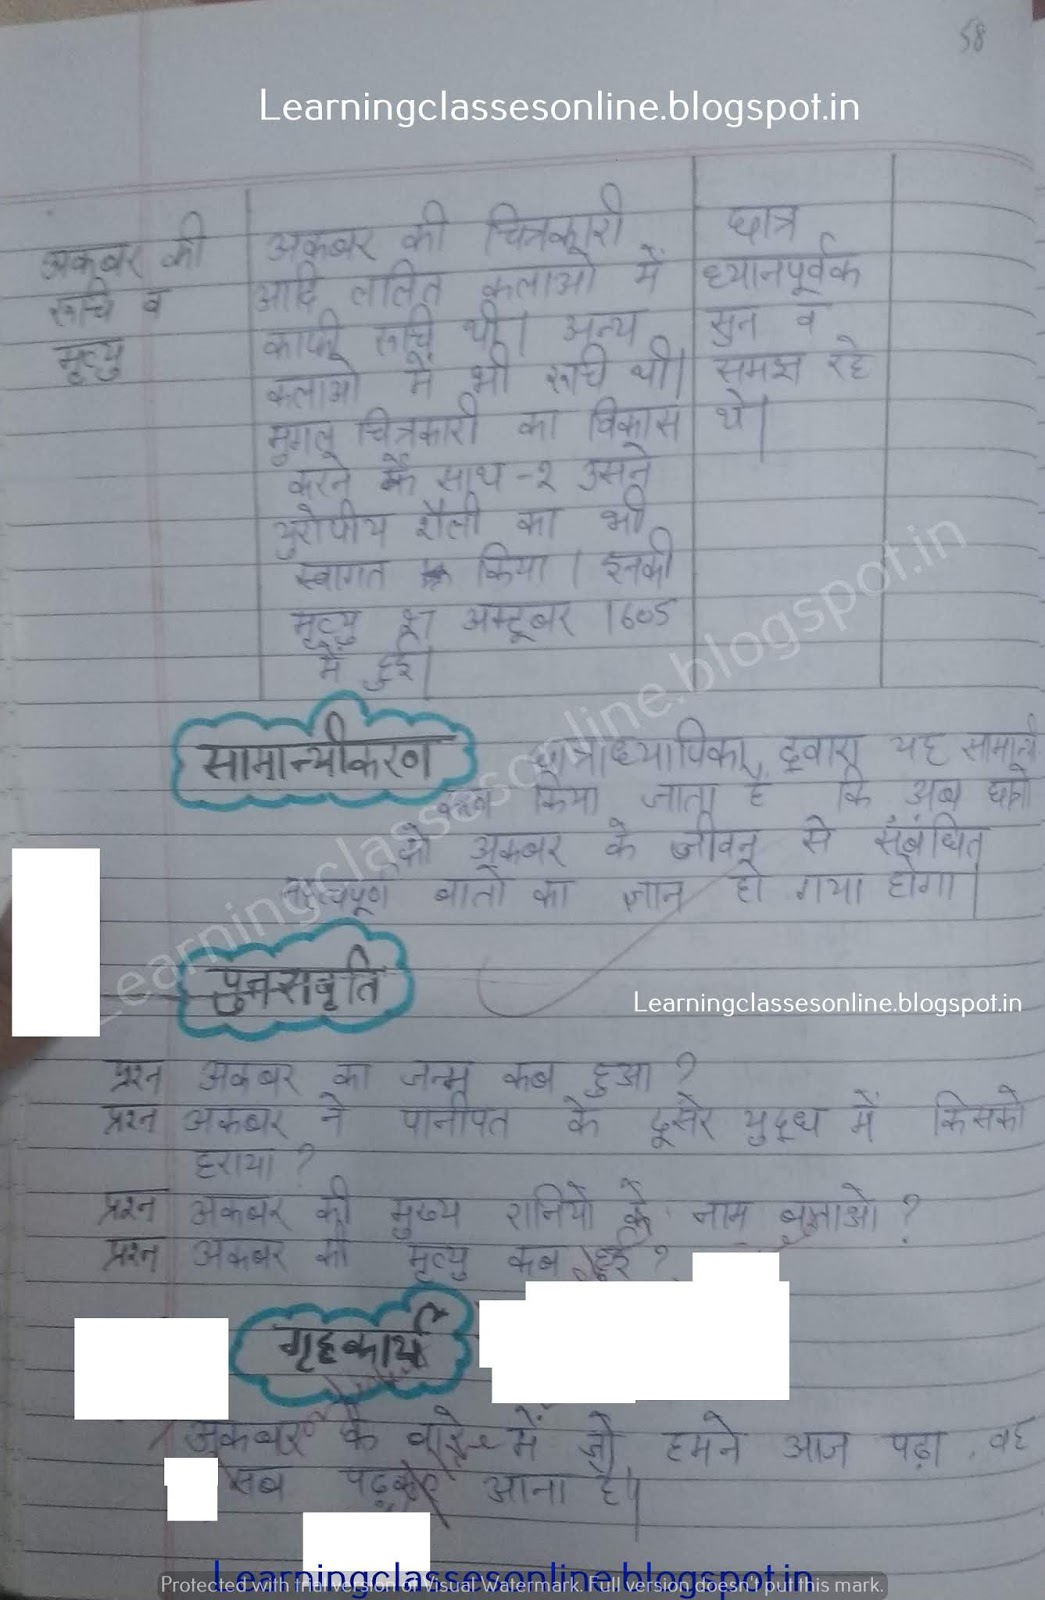 58
Learningclassesonline.blogspot.in
अकबर की
रूचि व
मृत्यु
अकबर की चित्रकारी
आदि ललित कलाओ में
काफी रूचि थी। अन्य
कलाओ में भी रूचि थी।
मुगल चित्रकारी का विकास
करने के साथ-२ उसने
युरोपीय शैली का भी
स्वागत किया। इनकी
मृत्यु अक्टूबर 1605
में हुई।
छात्र
ध्यानपूर्वक
सुन व
समझ रहे
थे।
सामान्यीकरण
छात्राध्यापिका द्वारा यह सामान्य
किया जाता है कि अब छात्रो
को अकबर के जीवन से संबंधित
महत्वपूण बातो का ज्ञान हो गया होगा।
Learningclassesonline.blogspot.in
पुनरावृति
Learningclassesonline.blogspot.in
प्रश्न अकबर का जन्म कब हुआ ?
प्रश्न अकबर ने पानीपत के दूसरे युद्ध में किसको
हराया ?
प्रश्न अकबर की मुख्य रानियो के नाम बताओ ?
प्रश्न अकबर की मृत्यु कब हुई ?
गृहकार्य
अकबर के बारे में जो हमने आज पढ़ा वह
सब पढ़कर आना है।
Learningclassesonline.blogspot.in
Protected with trial version of Visual Watermark. Full version doesn't put this mark.